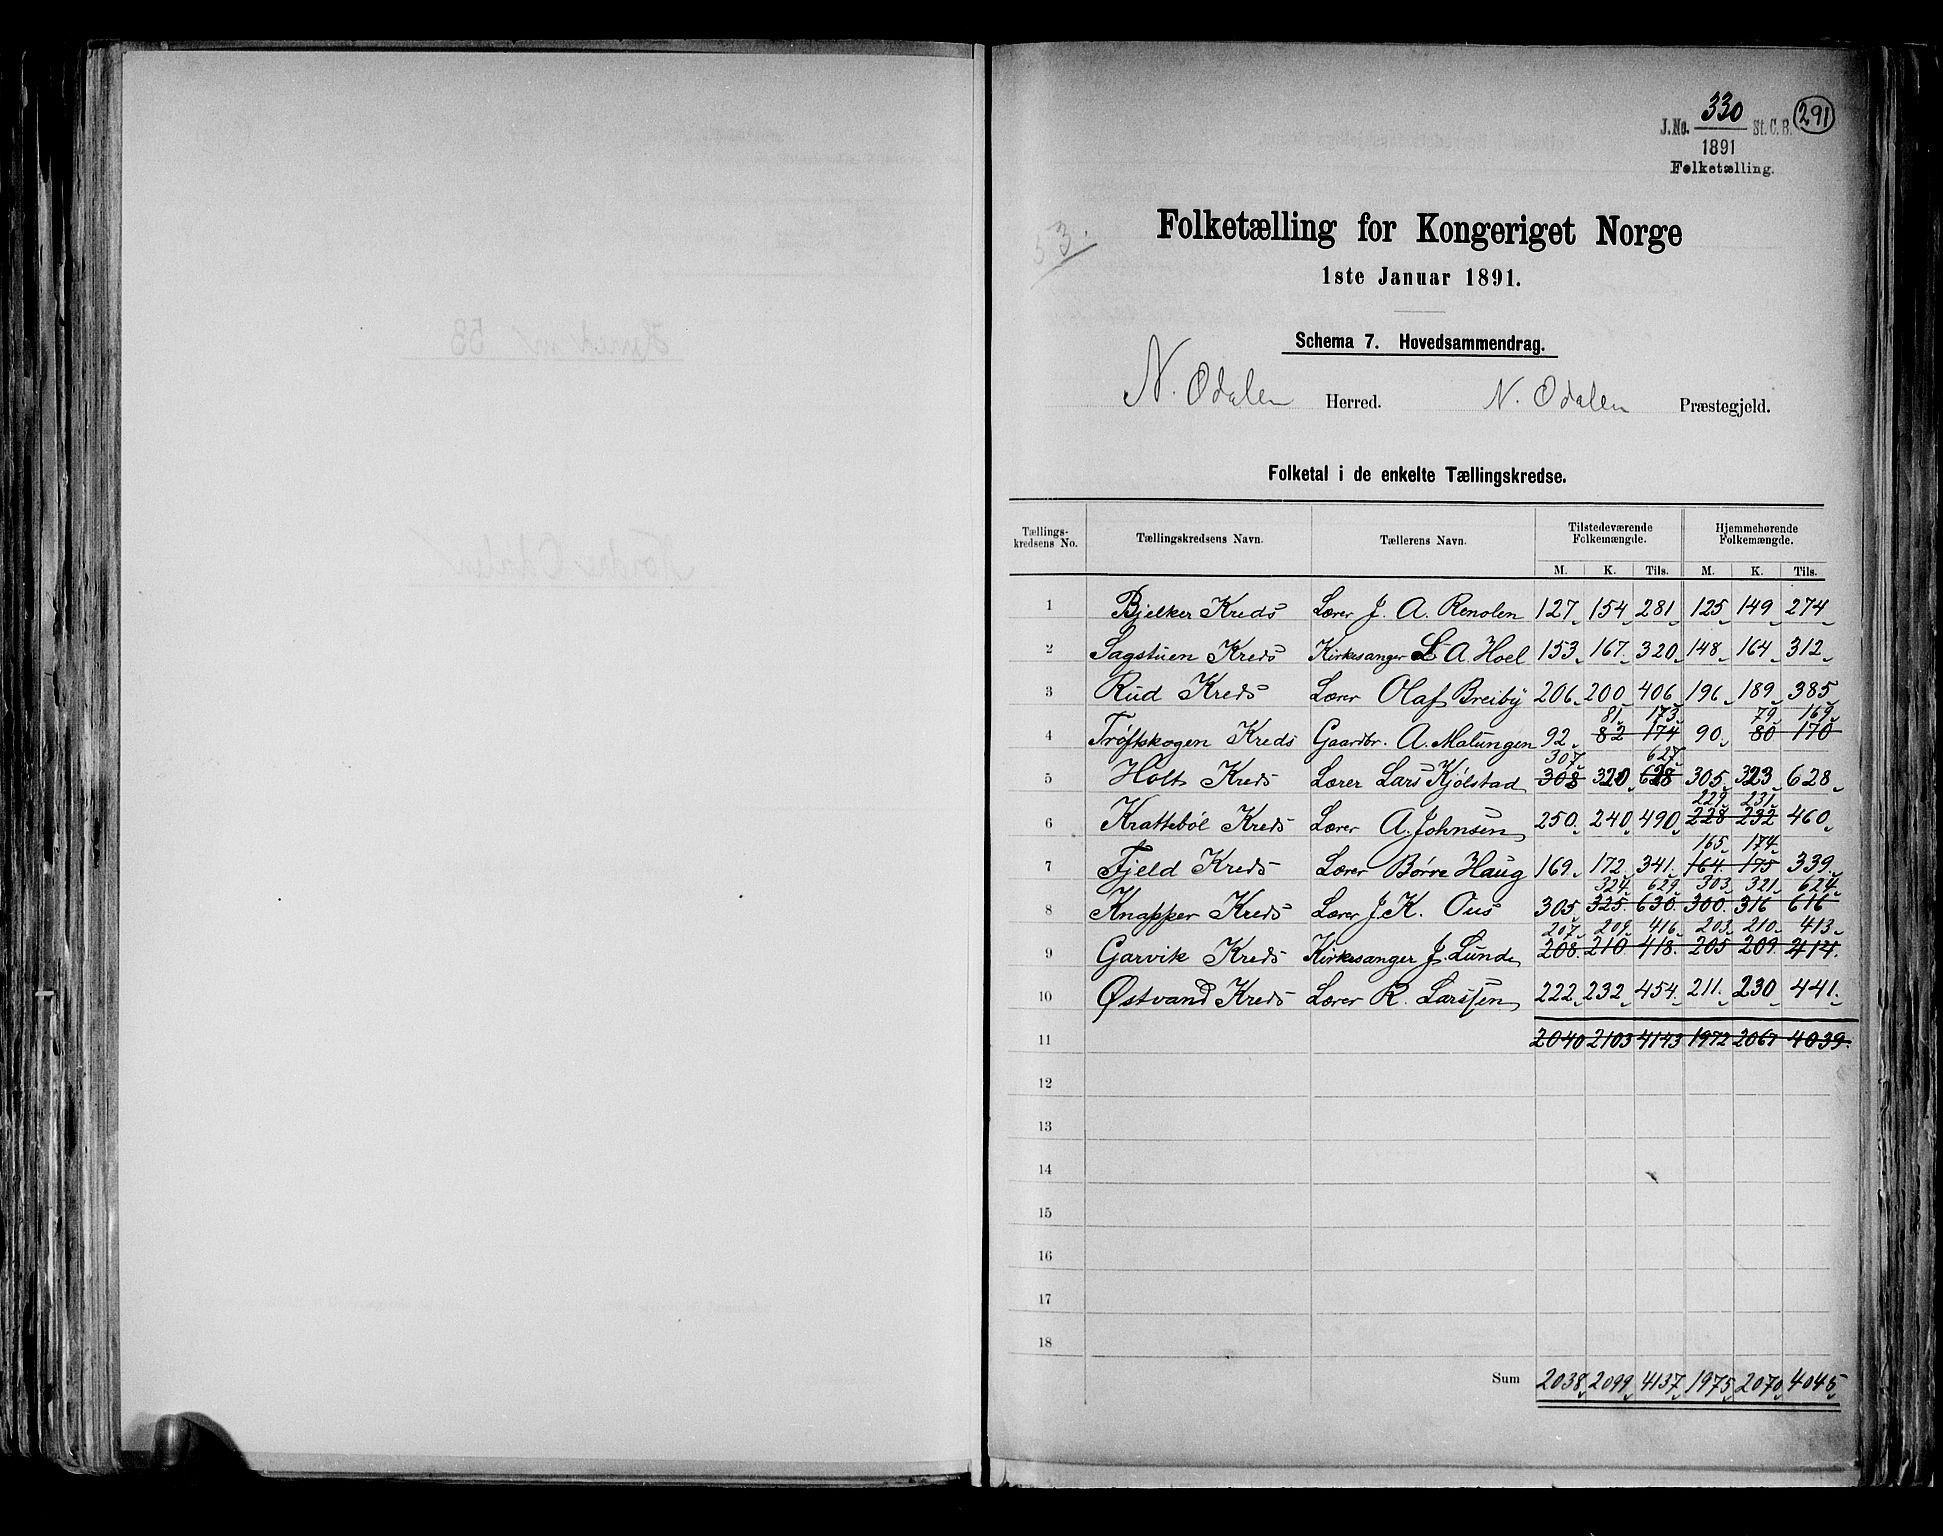 J. No. 330 St. C. B. 291
1891
Folketælling.
53.
Folketælling for Kongeriget Norge
1ste Januar 1891.
Schema 7. Hovedsammendrag.
N. Odalen Herred. N. Odalen Præstegjeld.
Folketal i de enkelte Tællingskredse.
Tællings-kredsens No. Tællingskredsens Navn. Tællerens Navn. Tilstedeværende Folkemængde. Hjemmehørende Folkemængde.
M. K. Tils. M. K. Tils.
1 Bjelker Kreds Lærer J. A. Renolen 127 154 281 125 149 274
2 Sagstuen Kreds Kirkesanger L A. Hoel 153 167 320 148 164 312
3 Rud Kreds Lærer Olaf Breiby 206 200 406 196 189 385
81 173 79 169
4 Trøftskogen Kreds Gaardbr. A. Malungen 92 82 174 90 80 170
307 627
5 Holt Kreds Lærer Lars Kjølstad 308 320 628 305 323 628
229 231
6 Krattebøl Kreds Lærer A. Johnsen 250 240 490 228 232 460
165 174
7 Fjeld Kreds Lærer Børre Haug 169 172 341 164 175 339
324 629 303 321 624
8 Knapper Kreds Lærer J. K. Ous 305 325 630 300 316 616
207 209 416 203 210 413
9 Garvik Kreds Kirkesanger J. Lunde 208 210 418 205 209 414
10 Østvand Kreds Lærer R. Larssen 222 232 454 211 230 441
11 2040 2103 4143 1972 2067 4039
12
13
14
15
16
17
18
Sum 2038 2099 4137 1975 2070 4045